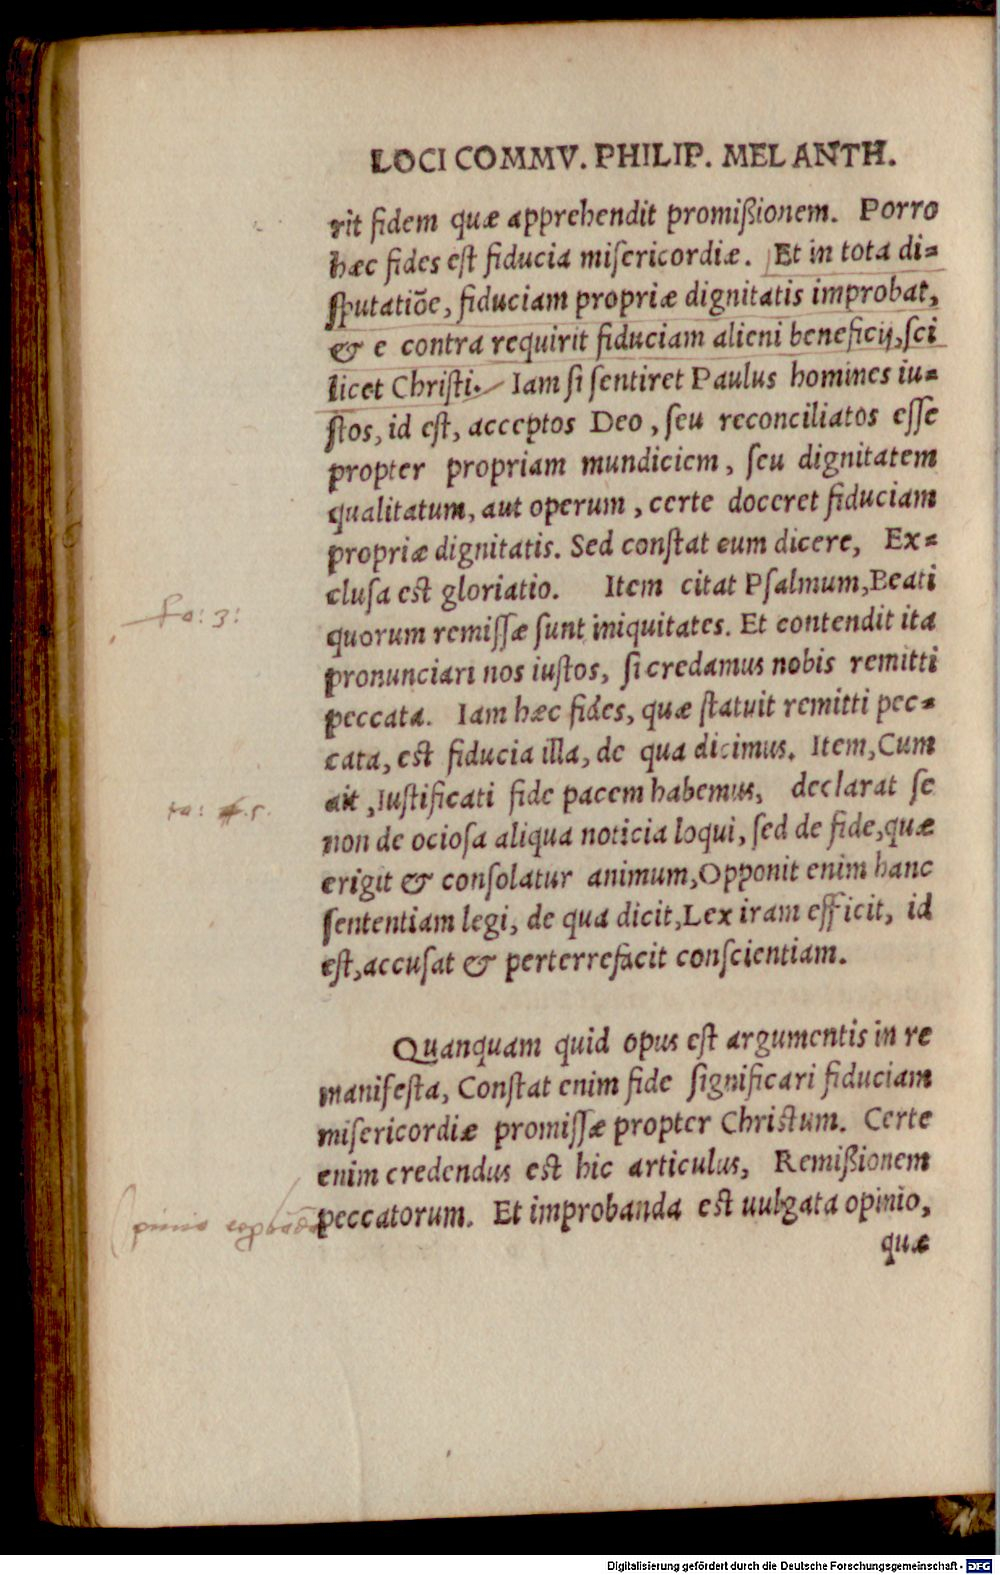 LOCI COMMV. PHILIP. MELANTH.
rit fidem quæ apprehendit promißionem. Porro
hæc fides est fiducia misericordiæ. Et in tota di=
sputatiõe, fiduciam propriæ dignitatis improbat,
& e contra requirit fiduciam alieni beneficij, sci
licet Christi. Iam si sentiret Paulus homines iu=
stos, id est, acceptos Deo, seu reconciliatos esse
propter propriam mundiciem, seu dignitatem
qualitatum, aut operum, certe doceret fiduciam
propriæ dignitatis. Sed constat eum dicere, Ex=
clusa est gloriatio. Item citat Psalmum, Beati
ro: 3:
quorum remissæ sunt iniquitates. Et contendit ita
pronunciari nos iustos, si credamus nobis remitti
peccata. Iam hæc fides, quæ statuit remitti pec=
cata, est fiducia illa, de qua dicimus. Item, Cum
ait, Iustificati fide pacem habemus, declarat se
ro: 5.
non de ociosa aliqua noticia loqui, sed de fide, quæ
erigit & consolatur animum, Opponit enim hanc
sententiam legi, de qua dicit, Lex iram efficit, id
est, accusat & perterrefacit conscientiam.
Quanquam quid opus est argumentis in re
manifesta, Constat enim fide significari fiduciam
misericordiæ promissæ propter Christum. Certe
enim credendus est hic articulus, Remißionem
peccatorum. Et improbanda est uulgata opinio,
quæ
Digitalisierung gefördert durch die Deutsche Forschungsgemeinschaft - DFG